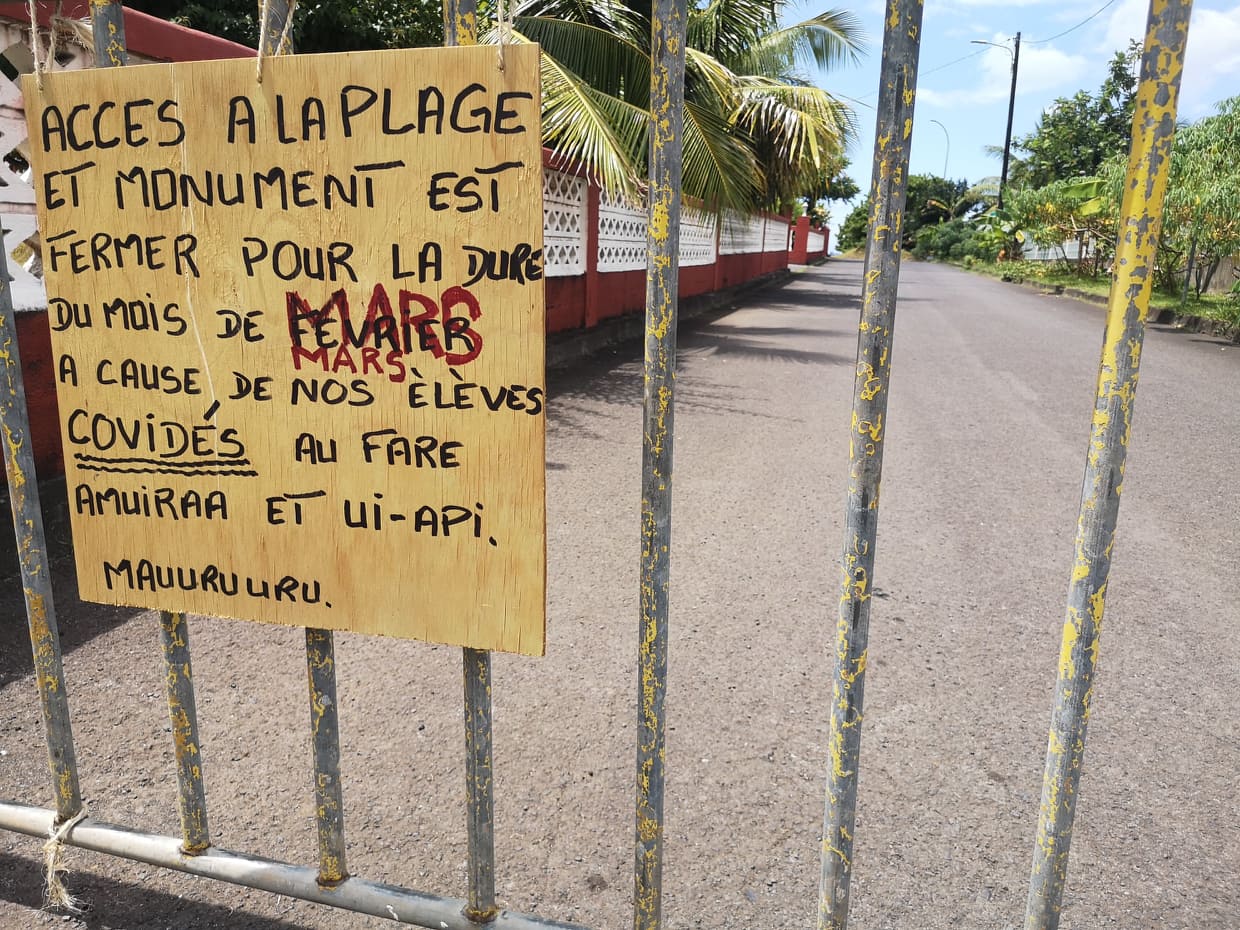 ACCES A LA PLAGE
ET MONUMENT EST
FERMER POUR LA DURE
DU MOIS DE FEVRIER MARS
MARS
A CAUSE DE NOS ÉLÈVES
COVIDÉS AU FARE
AMUIRAA ET UI-API.
MAUURUURU.